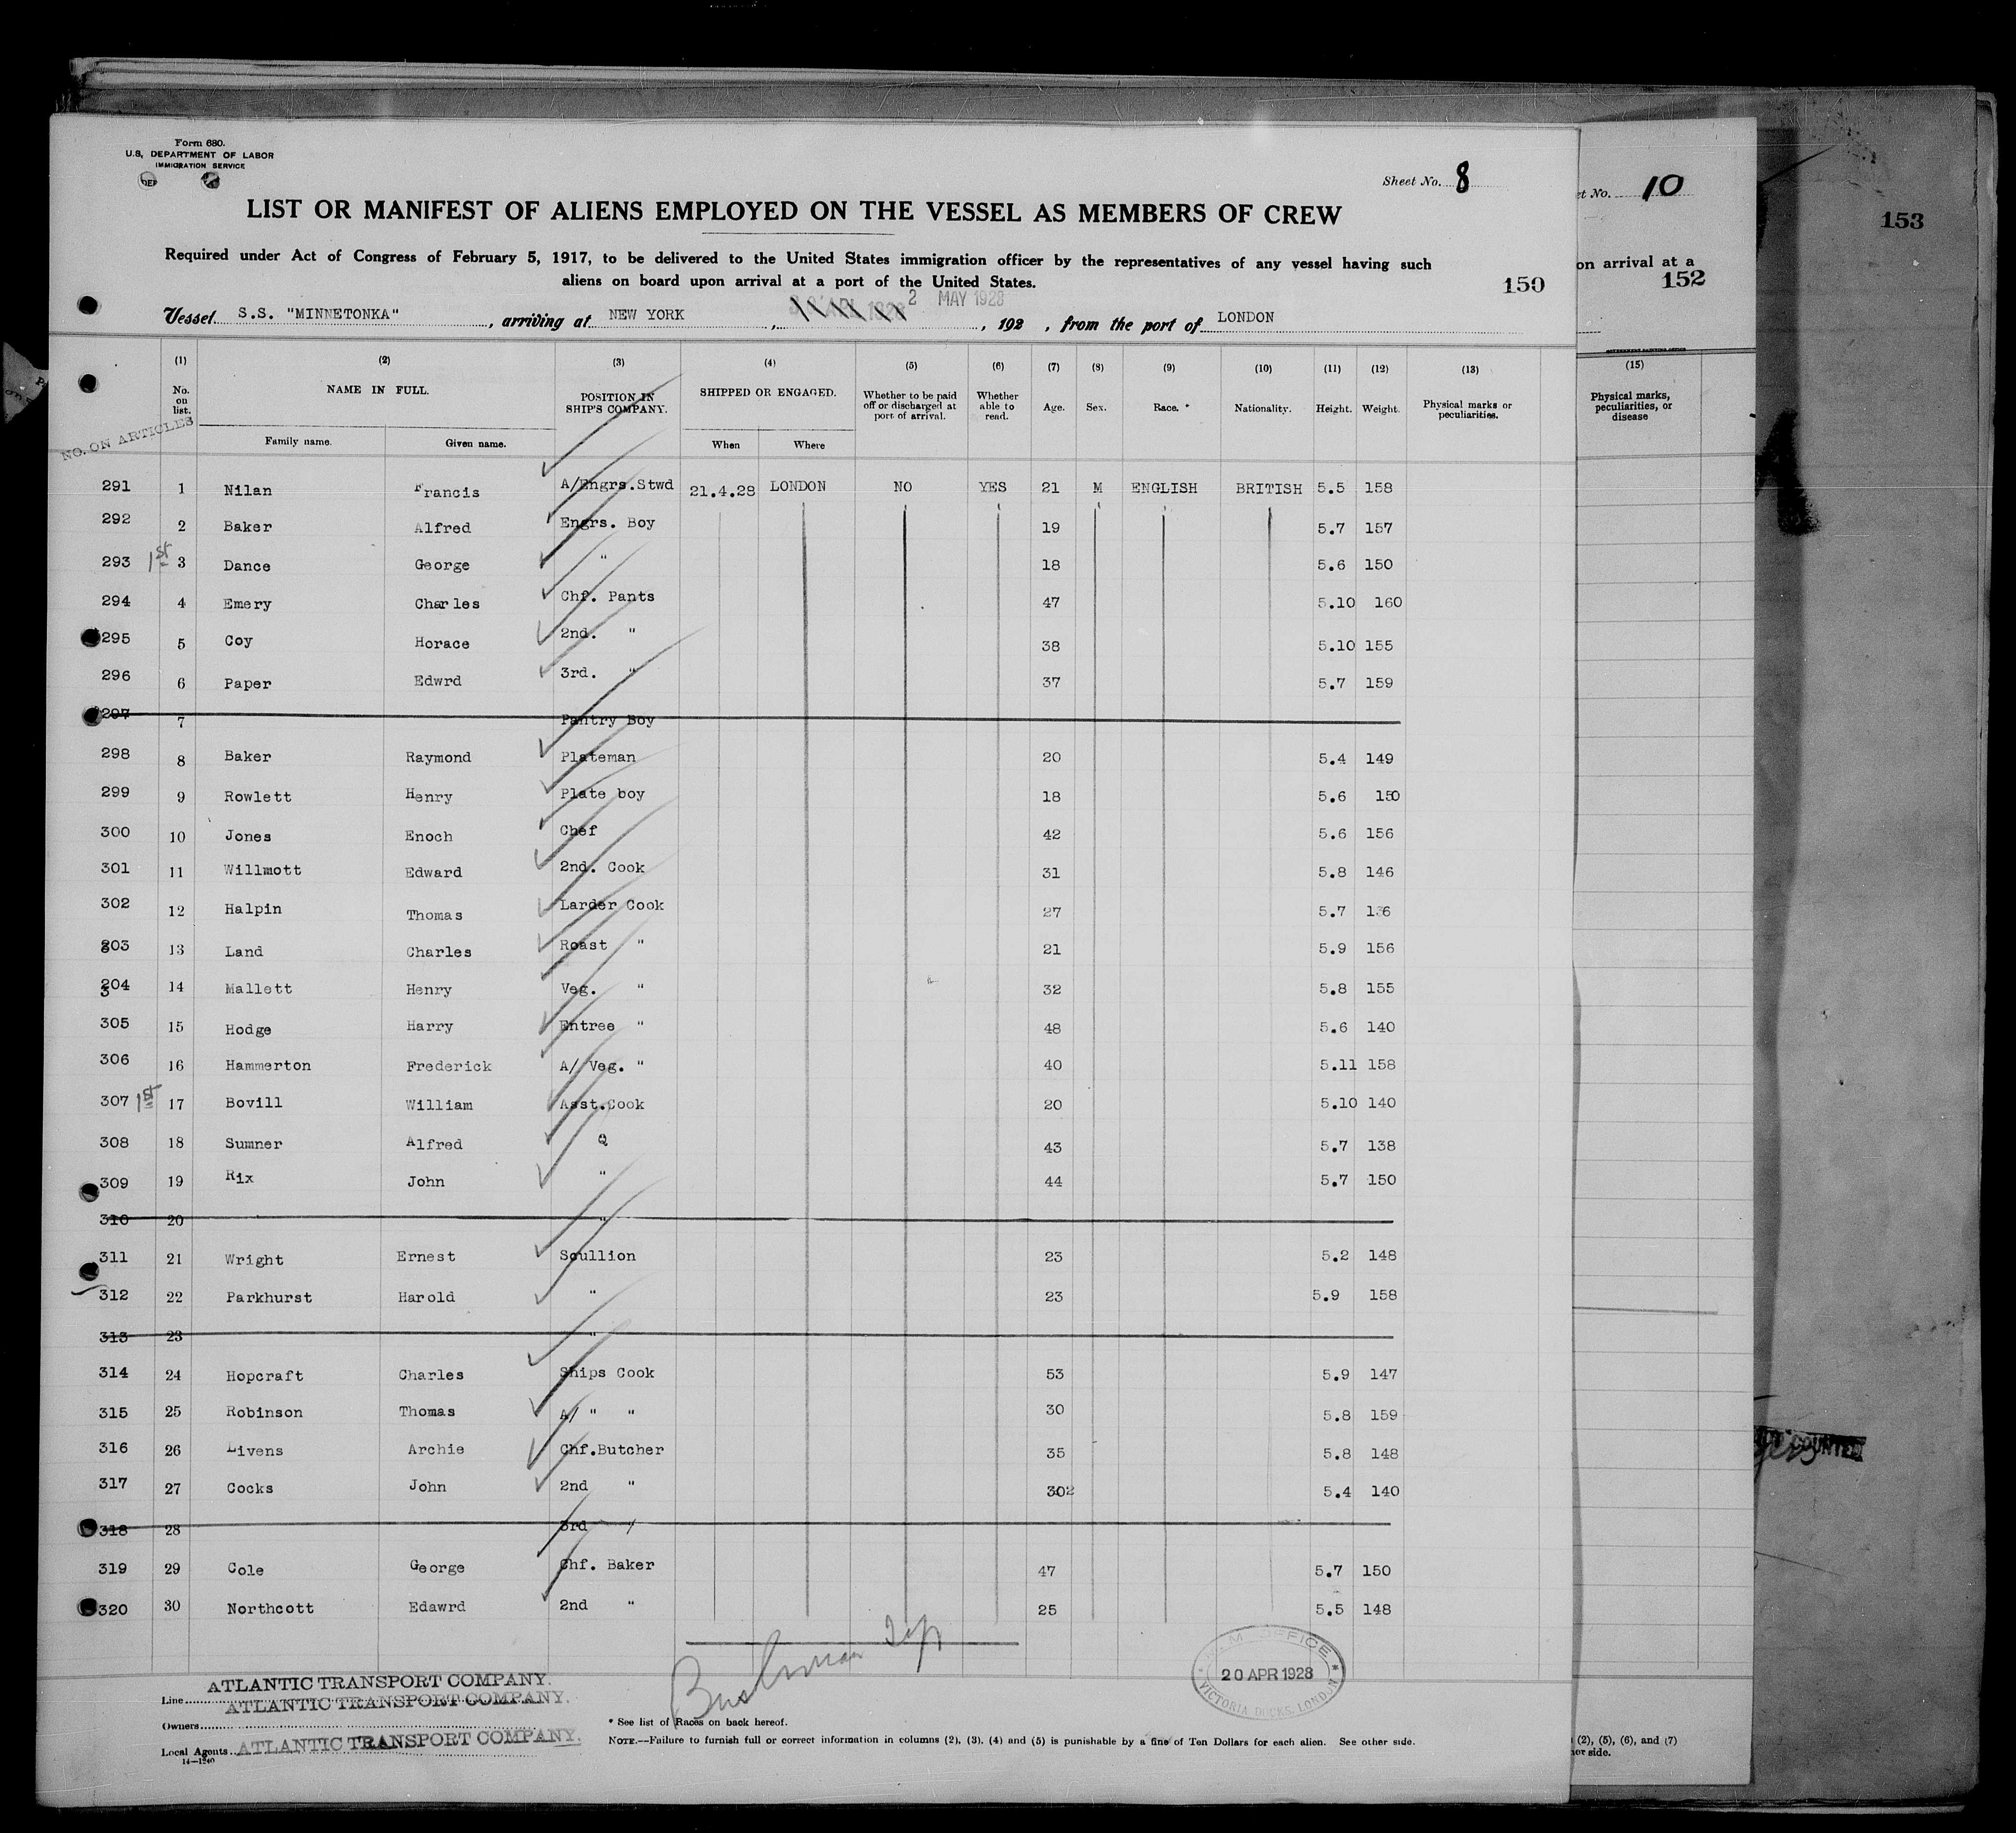 Form 680.
U.S. DEPARTMENT OF LABOR
IMMIGRATION SERVICE
Sheet No. 8
LIST OR MANIFEST OF ALIENS EMPLOYED ON THE VESSEL AS MEMBERS OF CREW
Required under Act of Congress of February 5, 1917, to be delivered to the United States immigration officer by the representatives of any vessel having such
aliens on board upon arrival at a port of the United States.
150
Vessel S.S. "MINNETONKA", arriving at NEW YORK, 2 MAY 1928, 192 , from the port of LONDON
(1) (2) (3) (4) (5) (6) (7) (8) (9) (10) (11) (12) (13)
No. on list. NAME IN FULL. POSITION IN SHIP'S COMPANY. SHIPPED OR ENGAGED. Whether to be paid off or discharged at port of arrival. Whether able to read. Age. Sex. Race.* Nationality. Height. Weight. Physical marks or peculiarities.
NO. ON ARTICLES Family name. Given name. When Where
291 1 Nilan Francis A/Engrs.Stwd 21.4.28 LONDON NO YES 21 M ENGLISH BRITISH 5.5 158
292 2 Baker Alfred Engrs. Boy 19 5.7 157
293 1st 3 Dance George " 18 5.6 150
294 4 Emery Charles Chf. Pants 47 5.10 160
295 5 Coy Horace 2nd. " 38 5.10 155
296 6 Paper Edwrd 3rd. " 37 5.7 159
297 7 Pantry Boy
298 8 Baker Raymond Plateman 20 5.4 149
299 9 Rowlett Henry Plate boy 18 5.6 150
300 10 Jones Enoch Chef 42 5.6 156
301 11 Willmott Edward 2nd. Cook 31 5.8 146
302 12 Halpin Thomas Larder Cook 27 5.7 136
303 13 Land Charles Roast " 21 5.9 156
304 14 Mallett Henry Veg. " 32 5.8 155
305 15 Hodge Harry Entree " 48 5.6 140
306 16 Hammerton Frederick A/ Veg. " 40 5.11 158
307 1st 17 Bovill William Asst.Cook 20 5.10 140
308 18 Sumner Alfred Q 43 5.7 138
309 19 Rix John " 44 5.7 150
310 20 "
311 21 Wright Ernest Scullion 23 5.2 148
312 22 Parkhurst Harold " 23 5.9 158
313 23 "
314 24 Hopcraft Charles Ships Cook 53 5.9 147
315 25 Robinson Thomas A/ " " 30 5.8 159
316 26 Livens Archie Chf.Butcher 35 5.8 148
317 27 Cocks John 2nd " 302 5.4 140
318 28 3rd /
319 29 Cole George Chf. Baker 47 5.7 150
320 30 Northcott Edawrd 2nd " 25 5.5 148
OFFICE
20 APR 1928
VICTORIA DOCKS, LONDON
Line ATLANTIC TRANSPORT COMPANY.
Owners ATLANTIC TRANSPORT COMPANY.
Local Agents ATLANTIC TRANSPORT COMPANY.
14—1240
* See list of Races on back hereof.
NOTE.—Failure to furnish full or correct information in columns (2), (3), (4) and (5) is punishable by a fine of Ten Dollars for each alien. See other side.
No. 10
on arrival at a
152
(15)
Physical marks, peculiarities, or disease
(2), (5), (6), and (7)
side.
153
COUNTED